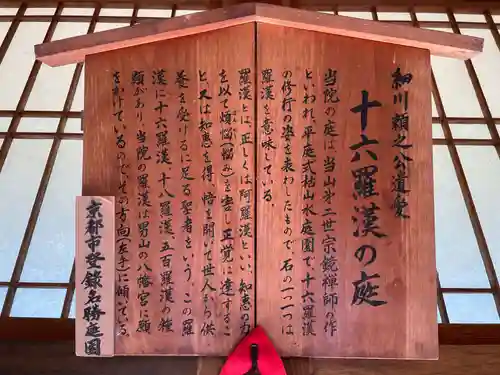 細川頼之公遺愛
十六羅漢の庭
当院の庭は当山第二世宗鏡禅師の作
といわれ、平庭式枯山水庭園で十六羅漢
の修行の姿を表わしたもので、石の一つ一つは
羅漢を意味している。
羅漢とは、正しくは阿羅漢といい、知恵の力
を以て煩悩(悩み)を害し正覚に達するこ
と、又は知恵を得、悟を開いて世人から供
養を受けるに足る聖者をいう。この羅
漢に十六羅漢、十八羅漢、五百羅漢の種
類があり、当院の羅漢は男山の八幡宮に願
をかけているのでその方向(左手)に傾いている。
京都市登録名勝庭園